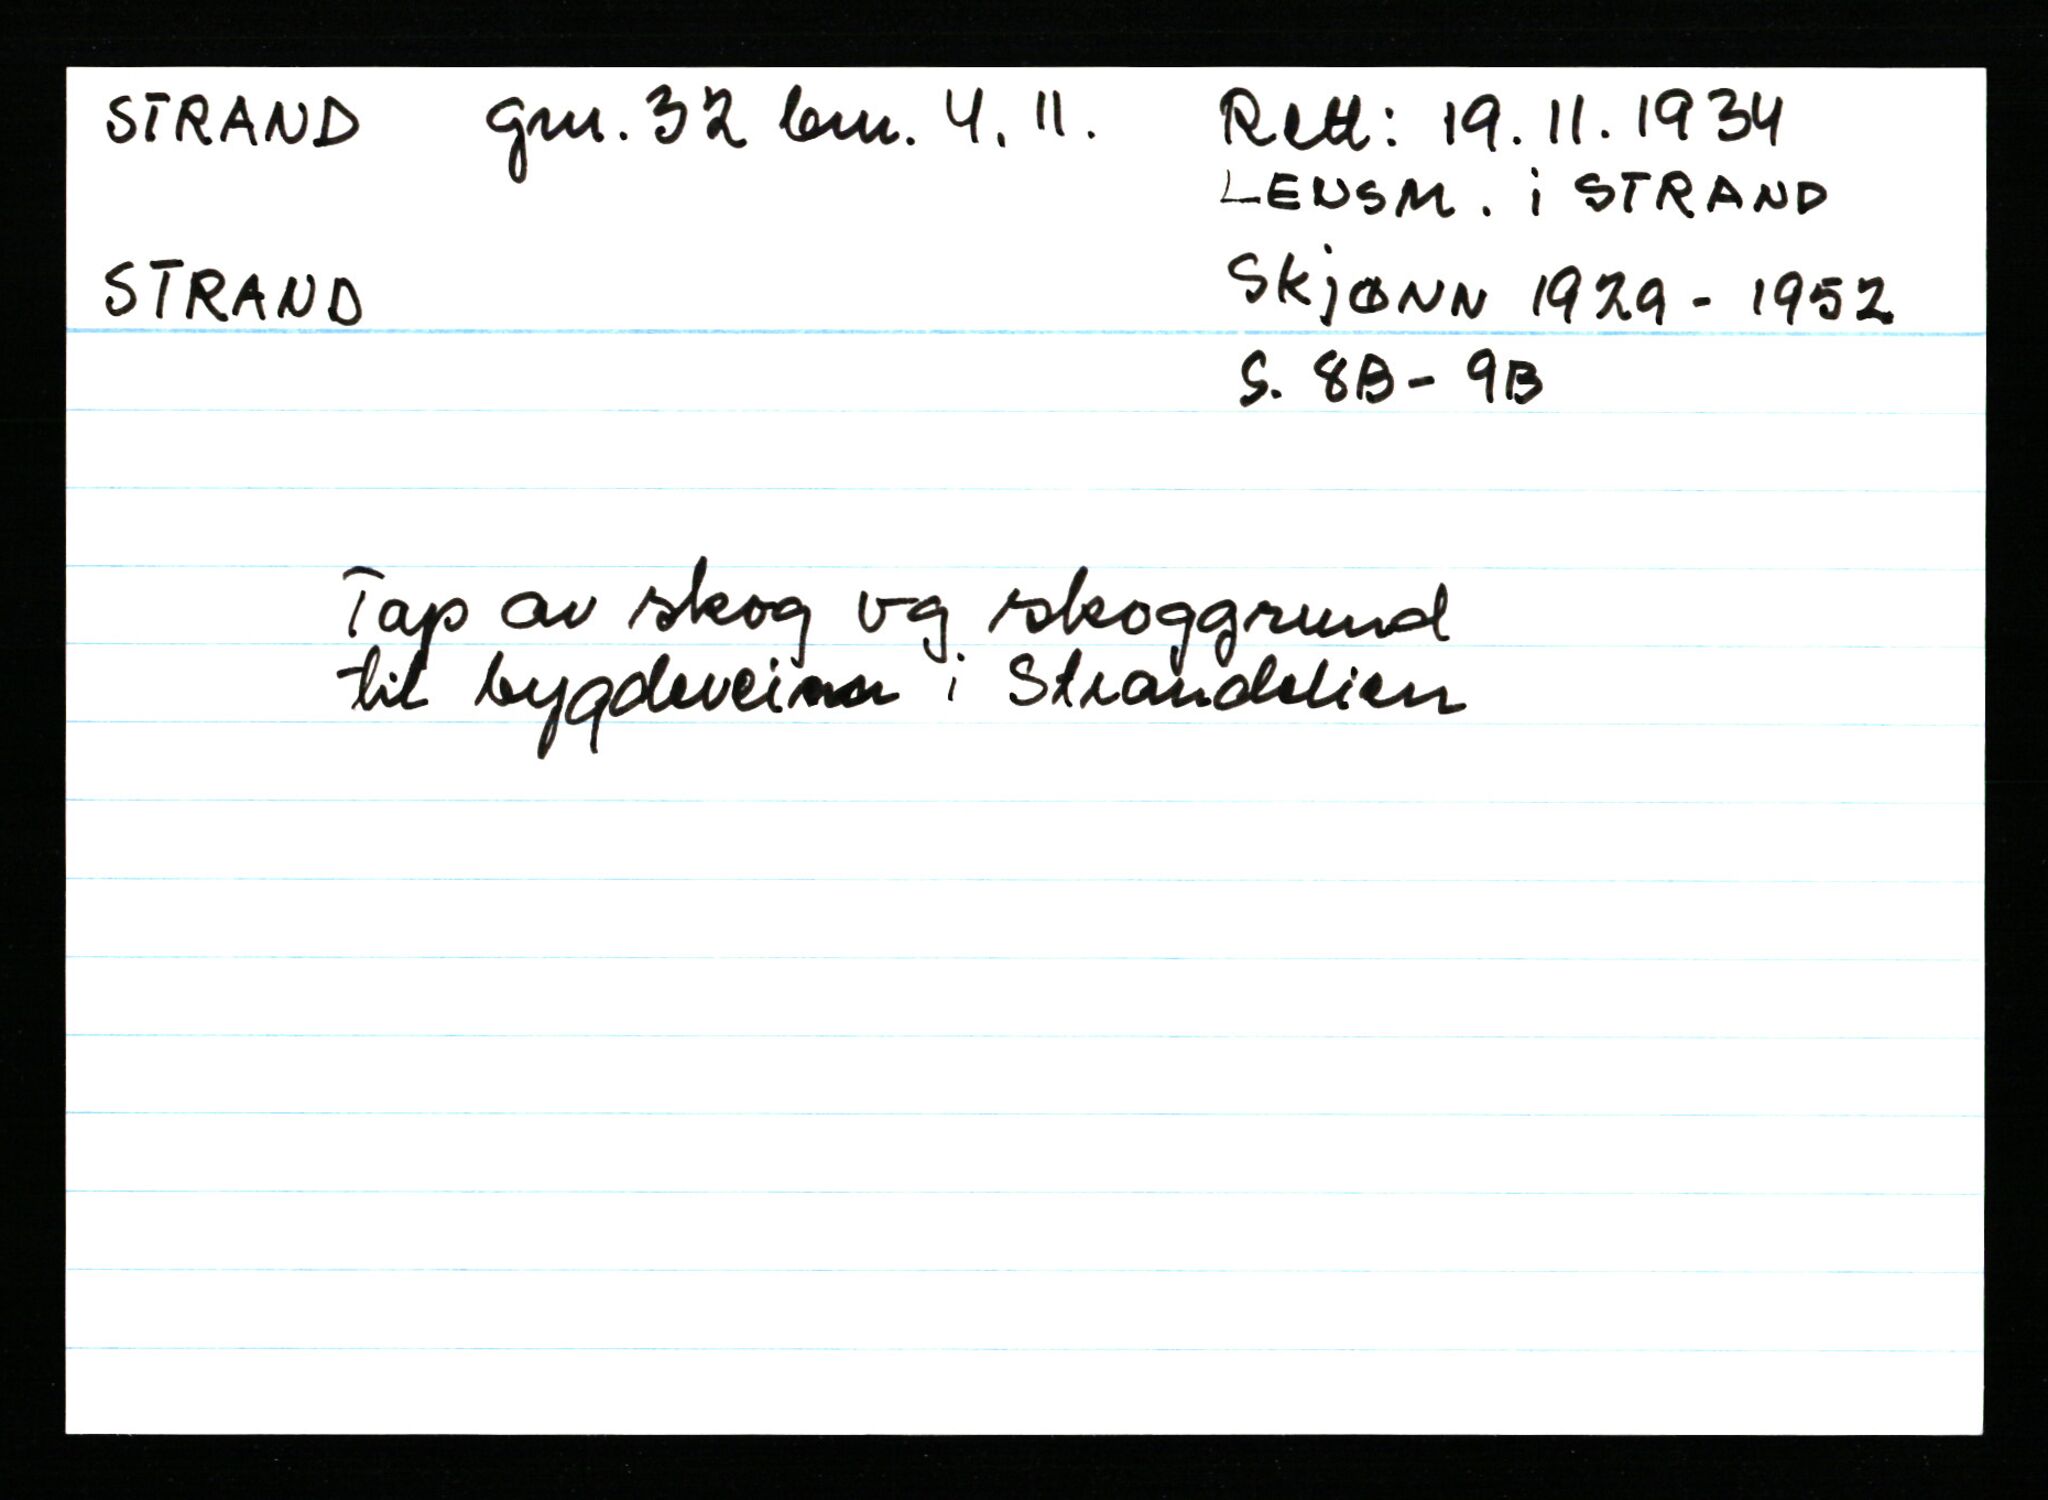 STRAND gnr. 32 bnr. 4, 11. Rett: 19.11.1934
LENSM. i STRAND
STRAND Skjønn 1929 - 1952
S. 8B - 9B
Tap av skog og skoggrund
til bygdeveien i Strandelien